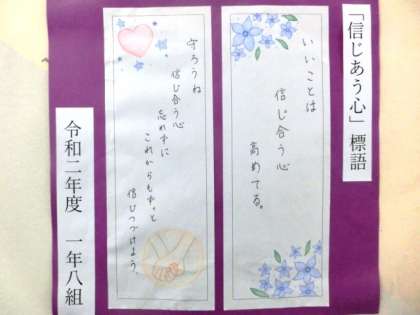 「信じあう心」標語
いいことは
信じ合う心
高めてる。
守ろうね
信じ合う心
忘れずに
これからもずっと
信じつづけよう。
令和二年度　一年八組